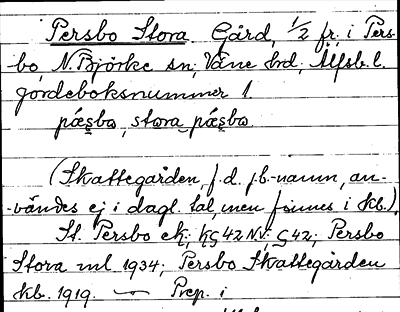 Persbo Stora Gård, 1/2 fr. i Pers-
bo, N. Björke sn, Väne hd, Älfsb. l.
jordeboksnummer 1
pæṣbo, stora pæṣbo
(Skattegården, f.d. jb-namn, an-
vändes ej i dagl. tal, men finnes i kb.),
St. Persbo ek; hs 42 NV; S 42; Persbo
Stora ml 1934; Persbo Skattegården
kb. 1919. — Prep. i